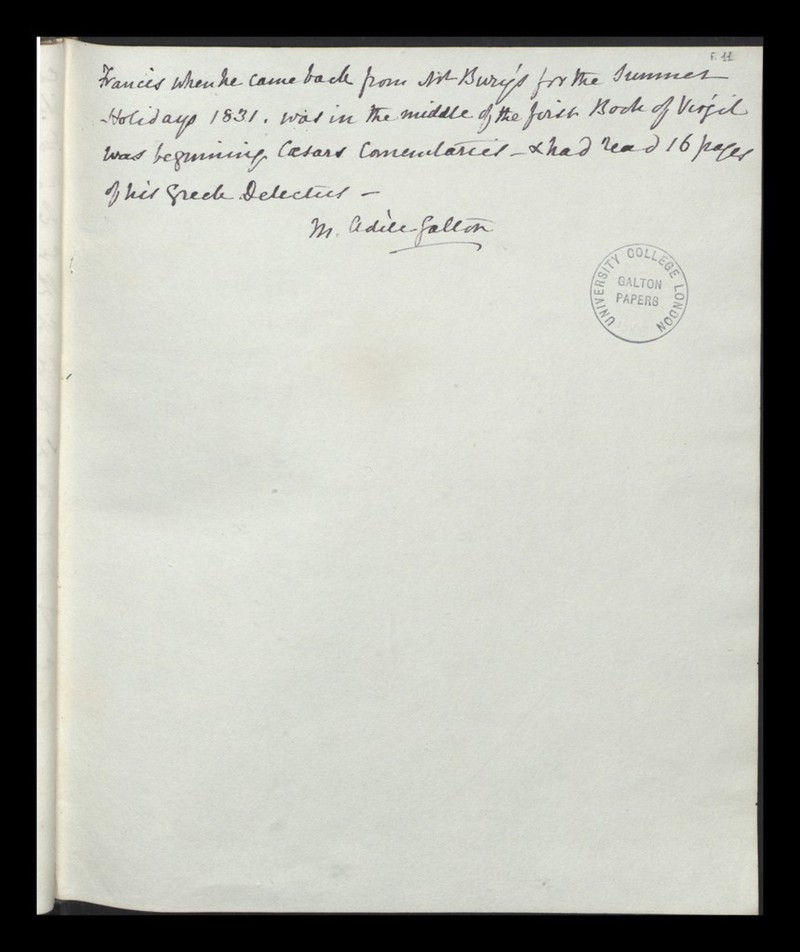 F. 11
Francis when he came back from Mr Bury's for the Summer
Holidays 1831. was in the middle of the first Book of Virgil
was beginning Cæsars Comentaries - & had read 16 pages
of his Greek Delectus -
M. Adèle Galton
UNIVERSITY COLLEGE LONDON
GALTON
PAPERS